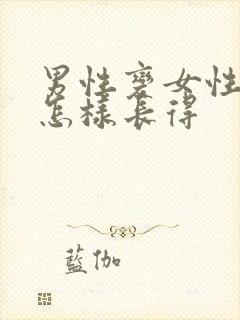 男性變女性
怎樣長得
藍伽